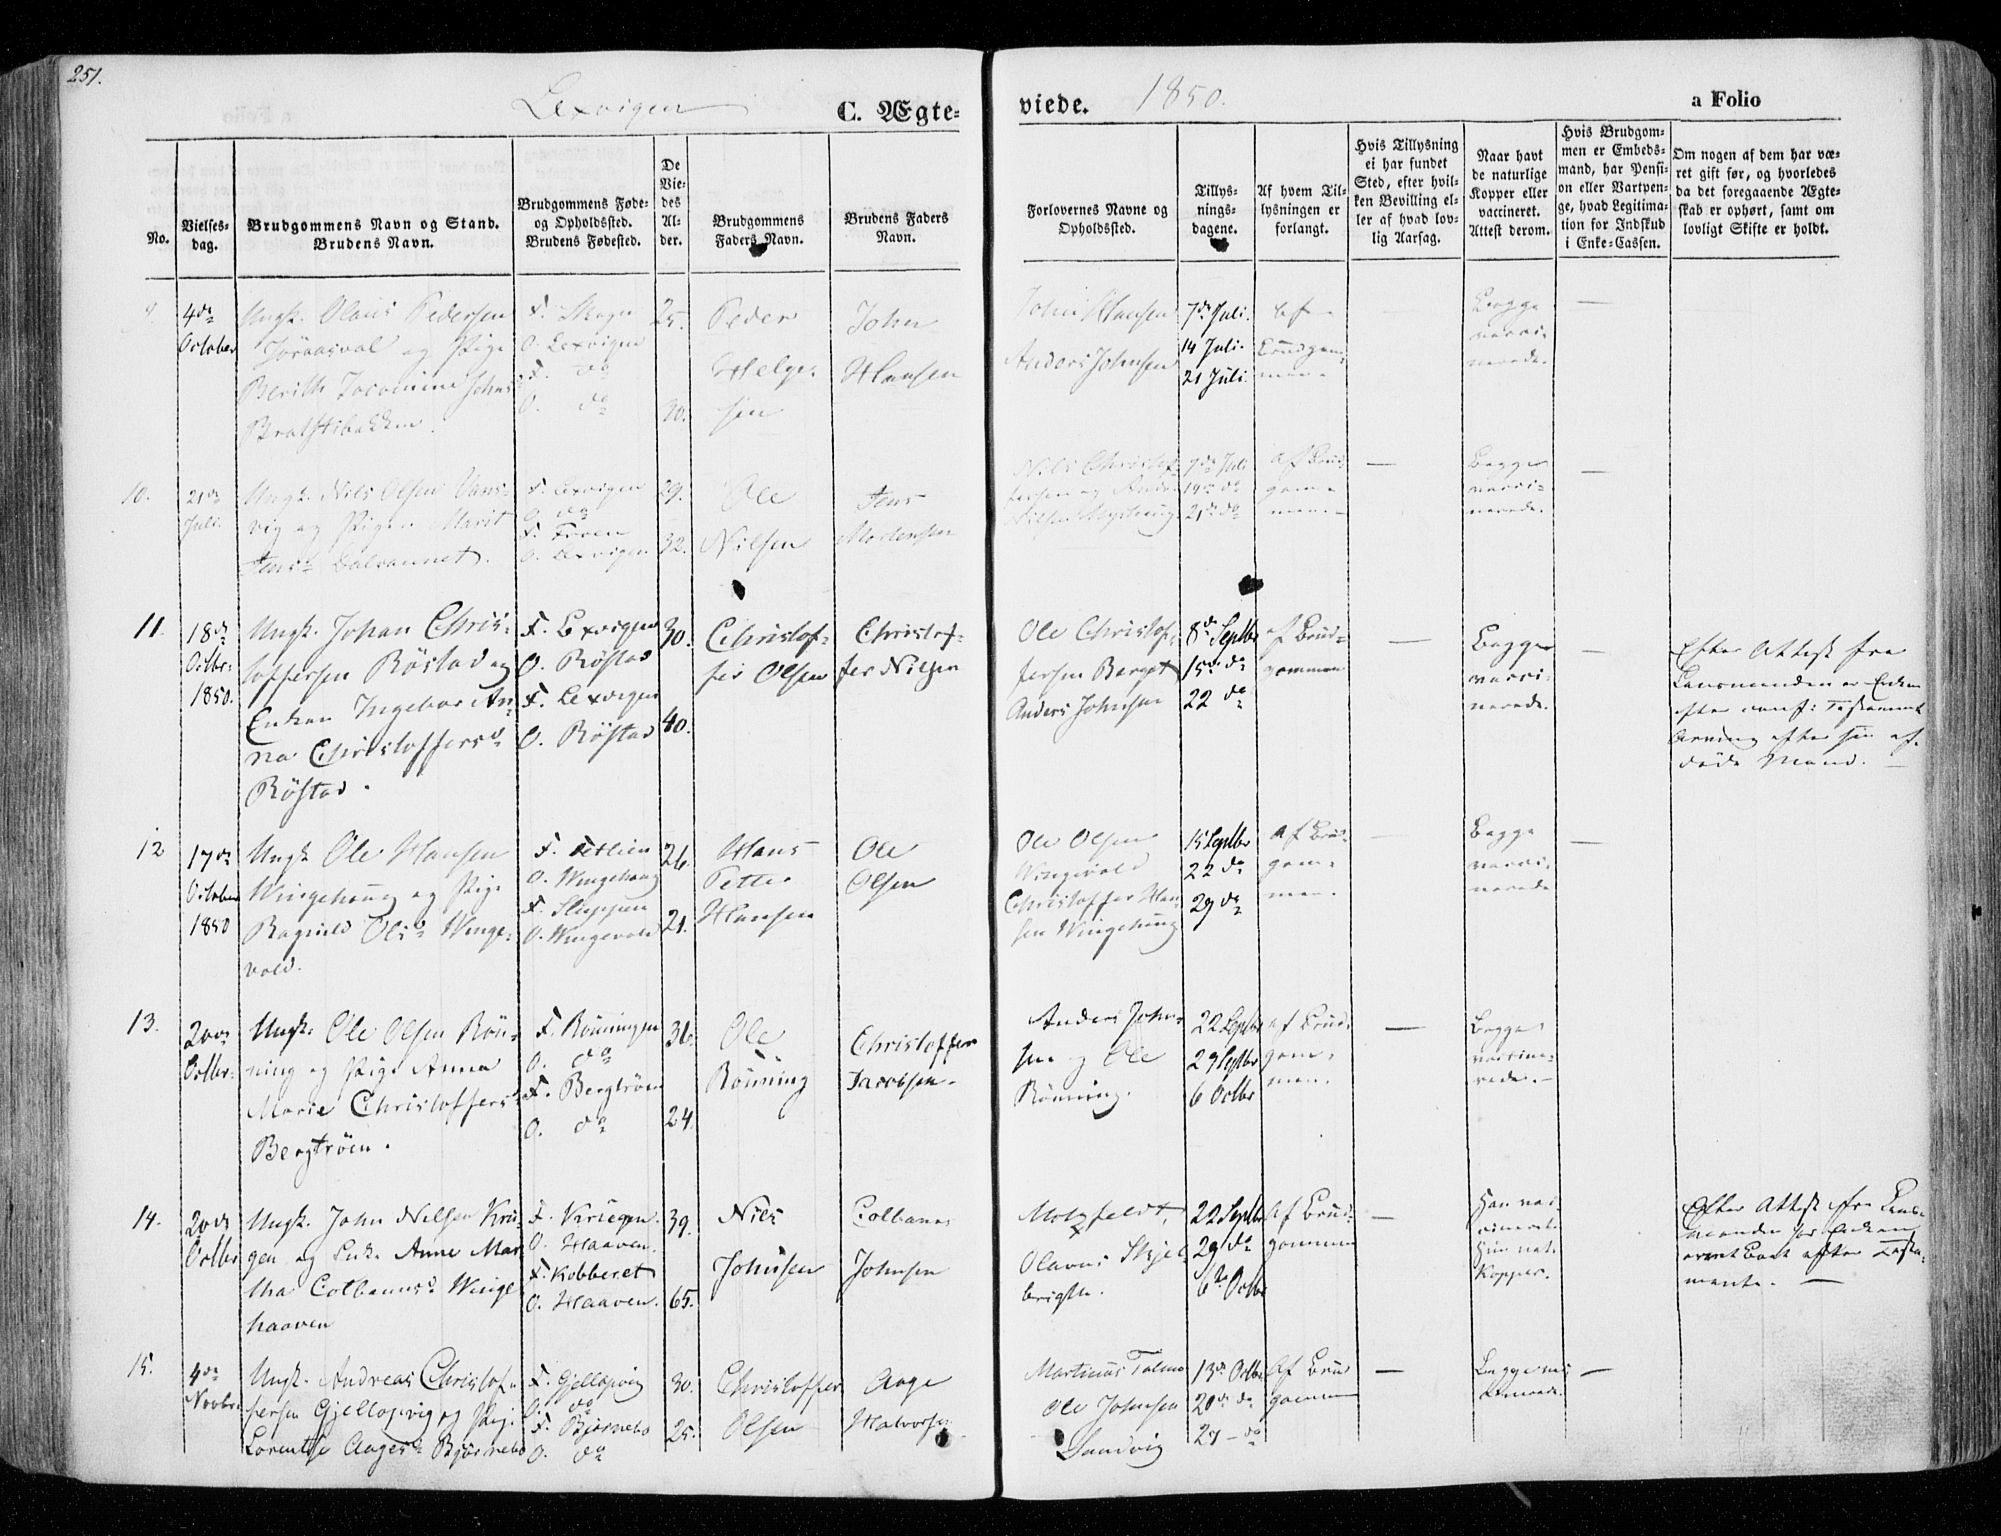 251.
Lexvigen
C. Ægte-
viede.
1850.
a Folio
No.
Vielses-
dag.
Brudgommens Navn og Stand.
Brudens Navn.
Brudgommens Føde-
og Opholdssted.
Brudens Fødested.
De
Vie-
des
Al-
der.
Brudgommens
Faders Navn.
Brudens Faders
Navn.
Forlovernes Navne og
Opholdssted.
Tillys-
nings-
dagene.
Af hvem Til-
lysningen er
forlangt.
Hvis Tillysning
ei har fundet
Sted, efter hvil-
ken Bevilling el-
ler af hvad lov-
lig Aarsag.
Naar havt
de naturlige
Kopper eller
vaccineret.
Attest derom.
Hvis Brudgom-
men er Embeds-
mand, har Pensi-
on eller Vartpen-
ge, hvad Legitima-
tion for Indskud
i Enke-Cassen.
Om nogen af dem har væ-
ret gift før, og hvorledes
da det foregaaende Ægte-
skab er ophørt, samt om
lovligt Skifte er holdt.
9.
4de
October
Ungk. Olaus Pedersen
og Pige
Berith Jacomine Johns
F.
O. Lexvigen
F. do
O. do
25.
30.
Peder
Helge-
sen
John
Hansen
John Hansen
Anders Johnsen
7de Juli.
14 Juli.
21 Juli.
af
Brudgom-
men
Begge
vacci-
nerede.
—
10.
21de
Juli.
Ungk. Nils Olsen Vans-
vig og Pigen Marit
Jensd. Dalvannet.
F. Lexvigen
O. do
F.
O. Lexvigen
29.
32.
Ole
Nilsen
Jens
Mortensen
Nils Christof-
fersen og
7de Juli
14de do
21de do
af Brud-
gom-
men
—
Begge
vacci-
nerede.
—
11.
18de
Octbr.
1850.
Ungk. Johan Chris-
toffersen Röstad og
Enken Ingebor An-
na Christoffersd.
Röstad.
F. Lexvigen
O. Röstad
F. Lexvigen
O. Röstad
30.
40.
Christof-
fer Olsen
Christof-
fer Nilsen
Ole Christof-
fersen Berget
Anders Johnsen
8de Septbr
15de do
22 do
af Brud-
gommen
—
Begge
vacci-
nerede.
—
Efter Attest fra
Lensmanden er Enken
efter conf: Testament
Arving efter sin af-
døde Mand. —
12
17de
October
1850
Ungk Ole Hansen
Wingehaug og Pige
Ragnild Olsd. Winge-
vold.
F.
O. Wingehaug
F. Sluppen
O. Wingevold
26.
21.
Hans
Petter
Hansen
Ole
Olsen
Ole Olsen
Wingevold
Christoffer Han-
sen Wingehaug
15 Septbr
22 do
29 do
af Brud-
gom-
men.
—
Begge
vacci-
nerede
—
13.
20de
Octbr.
Ungk. Ole Olsen Rön-
ning og Pige Anna
Marie Christoffersd.
Bergtröen.
F. Rönningen
O. do
F. Bergtröen
O. do
36.
24.
Ole
Rönning
Christoffer
Jacobsen.
Anders John-
sen og Ole
Rönning.
22 Septbr
29 Septbr
6 Octbr
af Brud-
gom-
men.
—
Begge
vaccine-
rede. —
14.
20de
Octbr
Ungk. John Nilsen Krü-
gen og Enke Anne Mar-
tha Colbanusd. Winge
haaven
F. Krügen.
O. Haaven.
F. Kobberet
O. Haaven.
39.
65.
Niels
Johnsen
Colbanus
Johnsen
Motzfeldt,
Olavus Skjel-
brigtn.
22 Septbr
29 do
6te Octbr
af Brud-
gommen
—
Han vac-
cineret.
Hun nat.
Kopper.
Efter Attest fra Lens-
manden
efter Testa-
mente. —
15.
4de
Novbr.
Ungk. Andreas Christof-
fersen Gjellopvig og Pige
Lorentse Aagesd. Björnebo
F. Gjellopvig
O. do
F. Björnebo
O. do
30.
25.
Christoffer
Olsen
Aage
Halvorsen
Martinus
Ole Johnsen
Sandvig
13de Octbr
20de do
27 - do
Af Brud
gommen
—
Begge vac
cinerede.
—